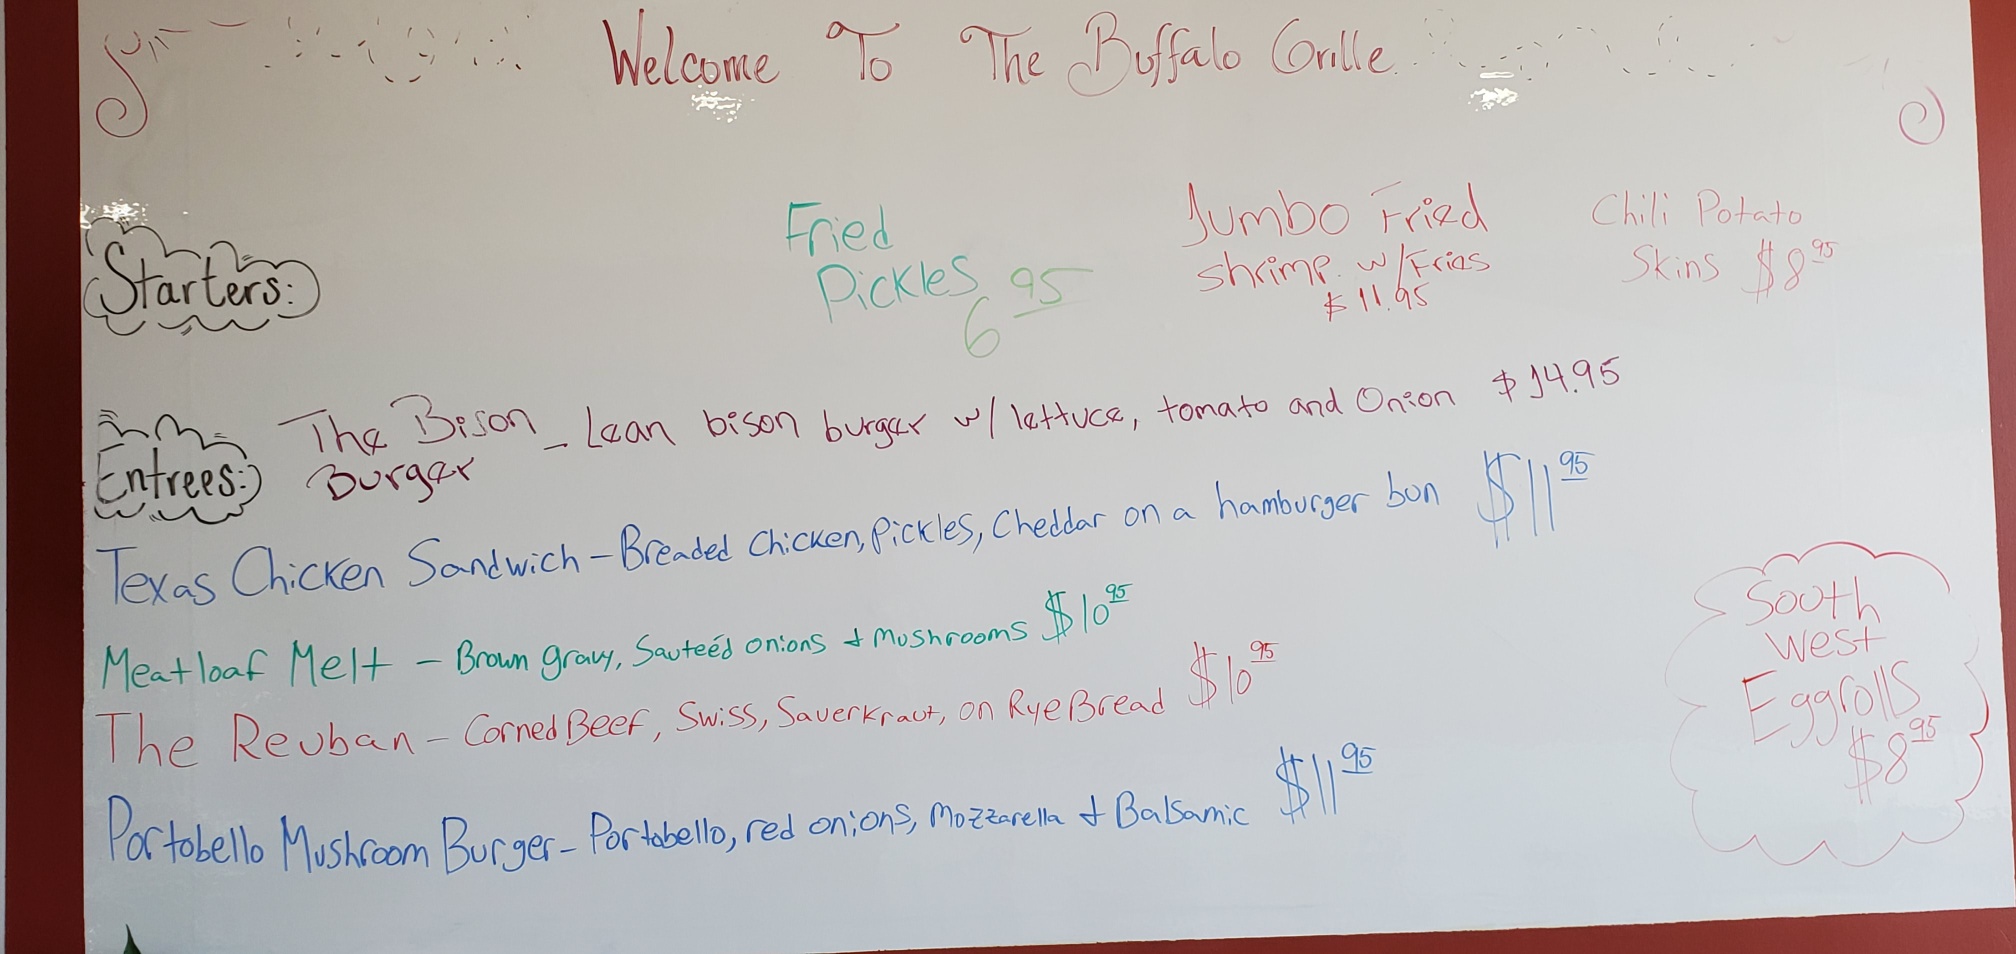 Welcome To The Buffalo Grille
Starters:
Fried
Pickles 6 95
Jumbo Fried
shrimp w/Fries
$11.95
Chili Potato
Skins $8 95
Entrees:
The Bison
Burger - Lean bison burger w/ lettuce, tomato and Onion $14.95
Texas Chicken Sandwich - Breaded Chicken, Pickles, Cheddar on a hamburger bun $11 95
Meatloaf Melt - Brown gravy, Sauteéd onions & Mushrooms $10 95
The Reuban - Corned Beef, Swiss, Sauerkraut, on Rye Bread $10 95
Portobello Mushroom Burger - Portabello, red onions, Mozzarella & Balsamic $11 95
South
West
Eggrolls
$8 95